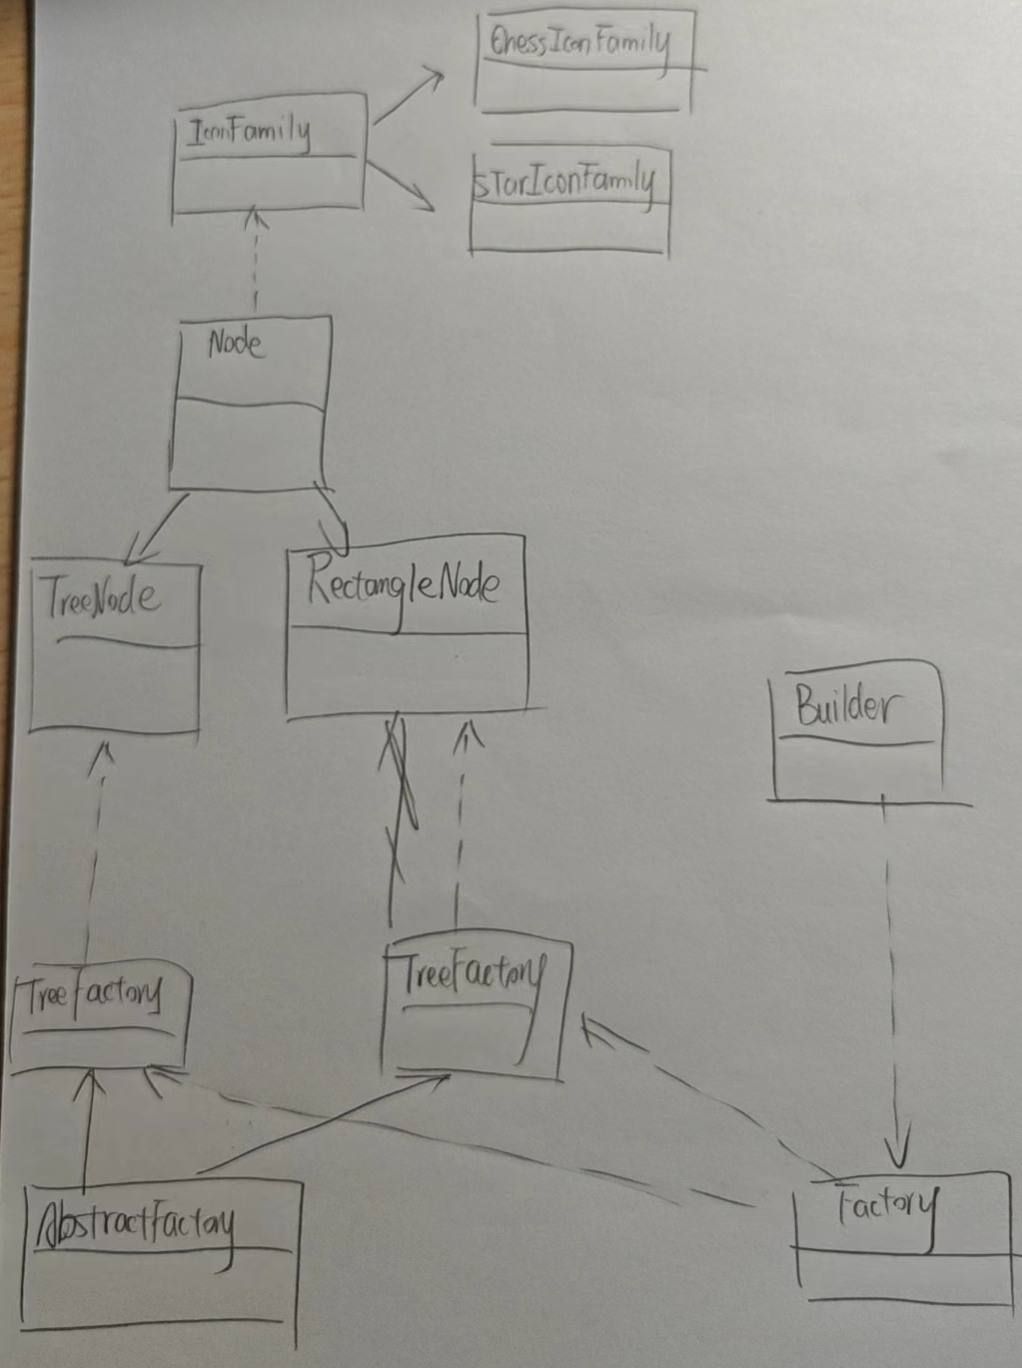 ChessIconFamily
IconFamily
STarIconFamily
Node
TreeNode
RectangleNode
Builder
TreeFactory
TreeFactory
AbstractFactory
Factory